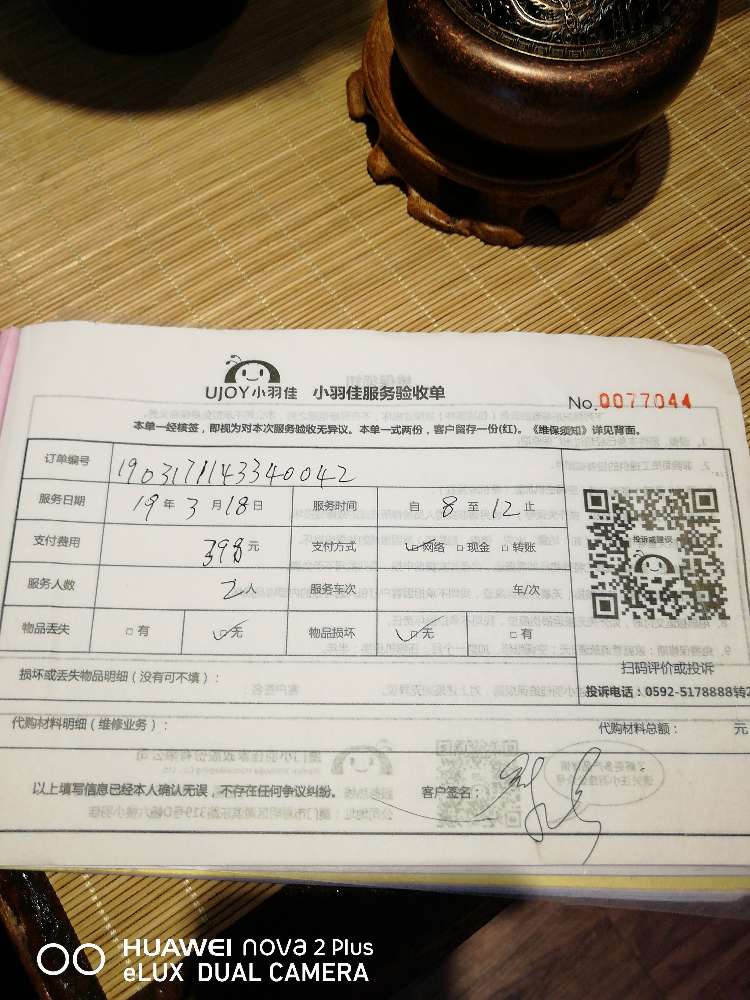 UJOY小羽佳 小羽佳服务验收单
No.0077044
本单一经核签，即视为对本次服务验收无异议。本单一式两份，客户留存一份(红)。《维保须知》详见背面。
订单编号 1903171143340042
服务日期 19年3月18日 服务时间 自8至12止
支付费用 398元 支付方式 ☑网络 □现金 □转账
服务人数 2人 服务车次 车/次
物品丢失 □有 ☑无 物品损坏 ☑无 □有
投诉或建议
扫码评价或投诉
损坏或丢失物品明细（没有可不填）：
投诉电话：0592-5178888转2
代购材料明细（维修业务）：
代购材料总额： 元
以上填写信息已经本人确认无误，不存在任何争议纠纷。 客户签名：
HUAWEI nova 2 Plus
eLUX DUAL CAMERA